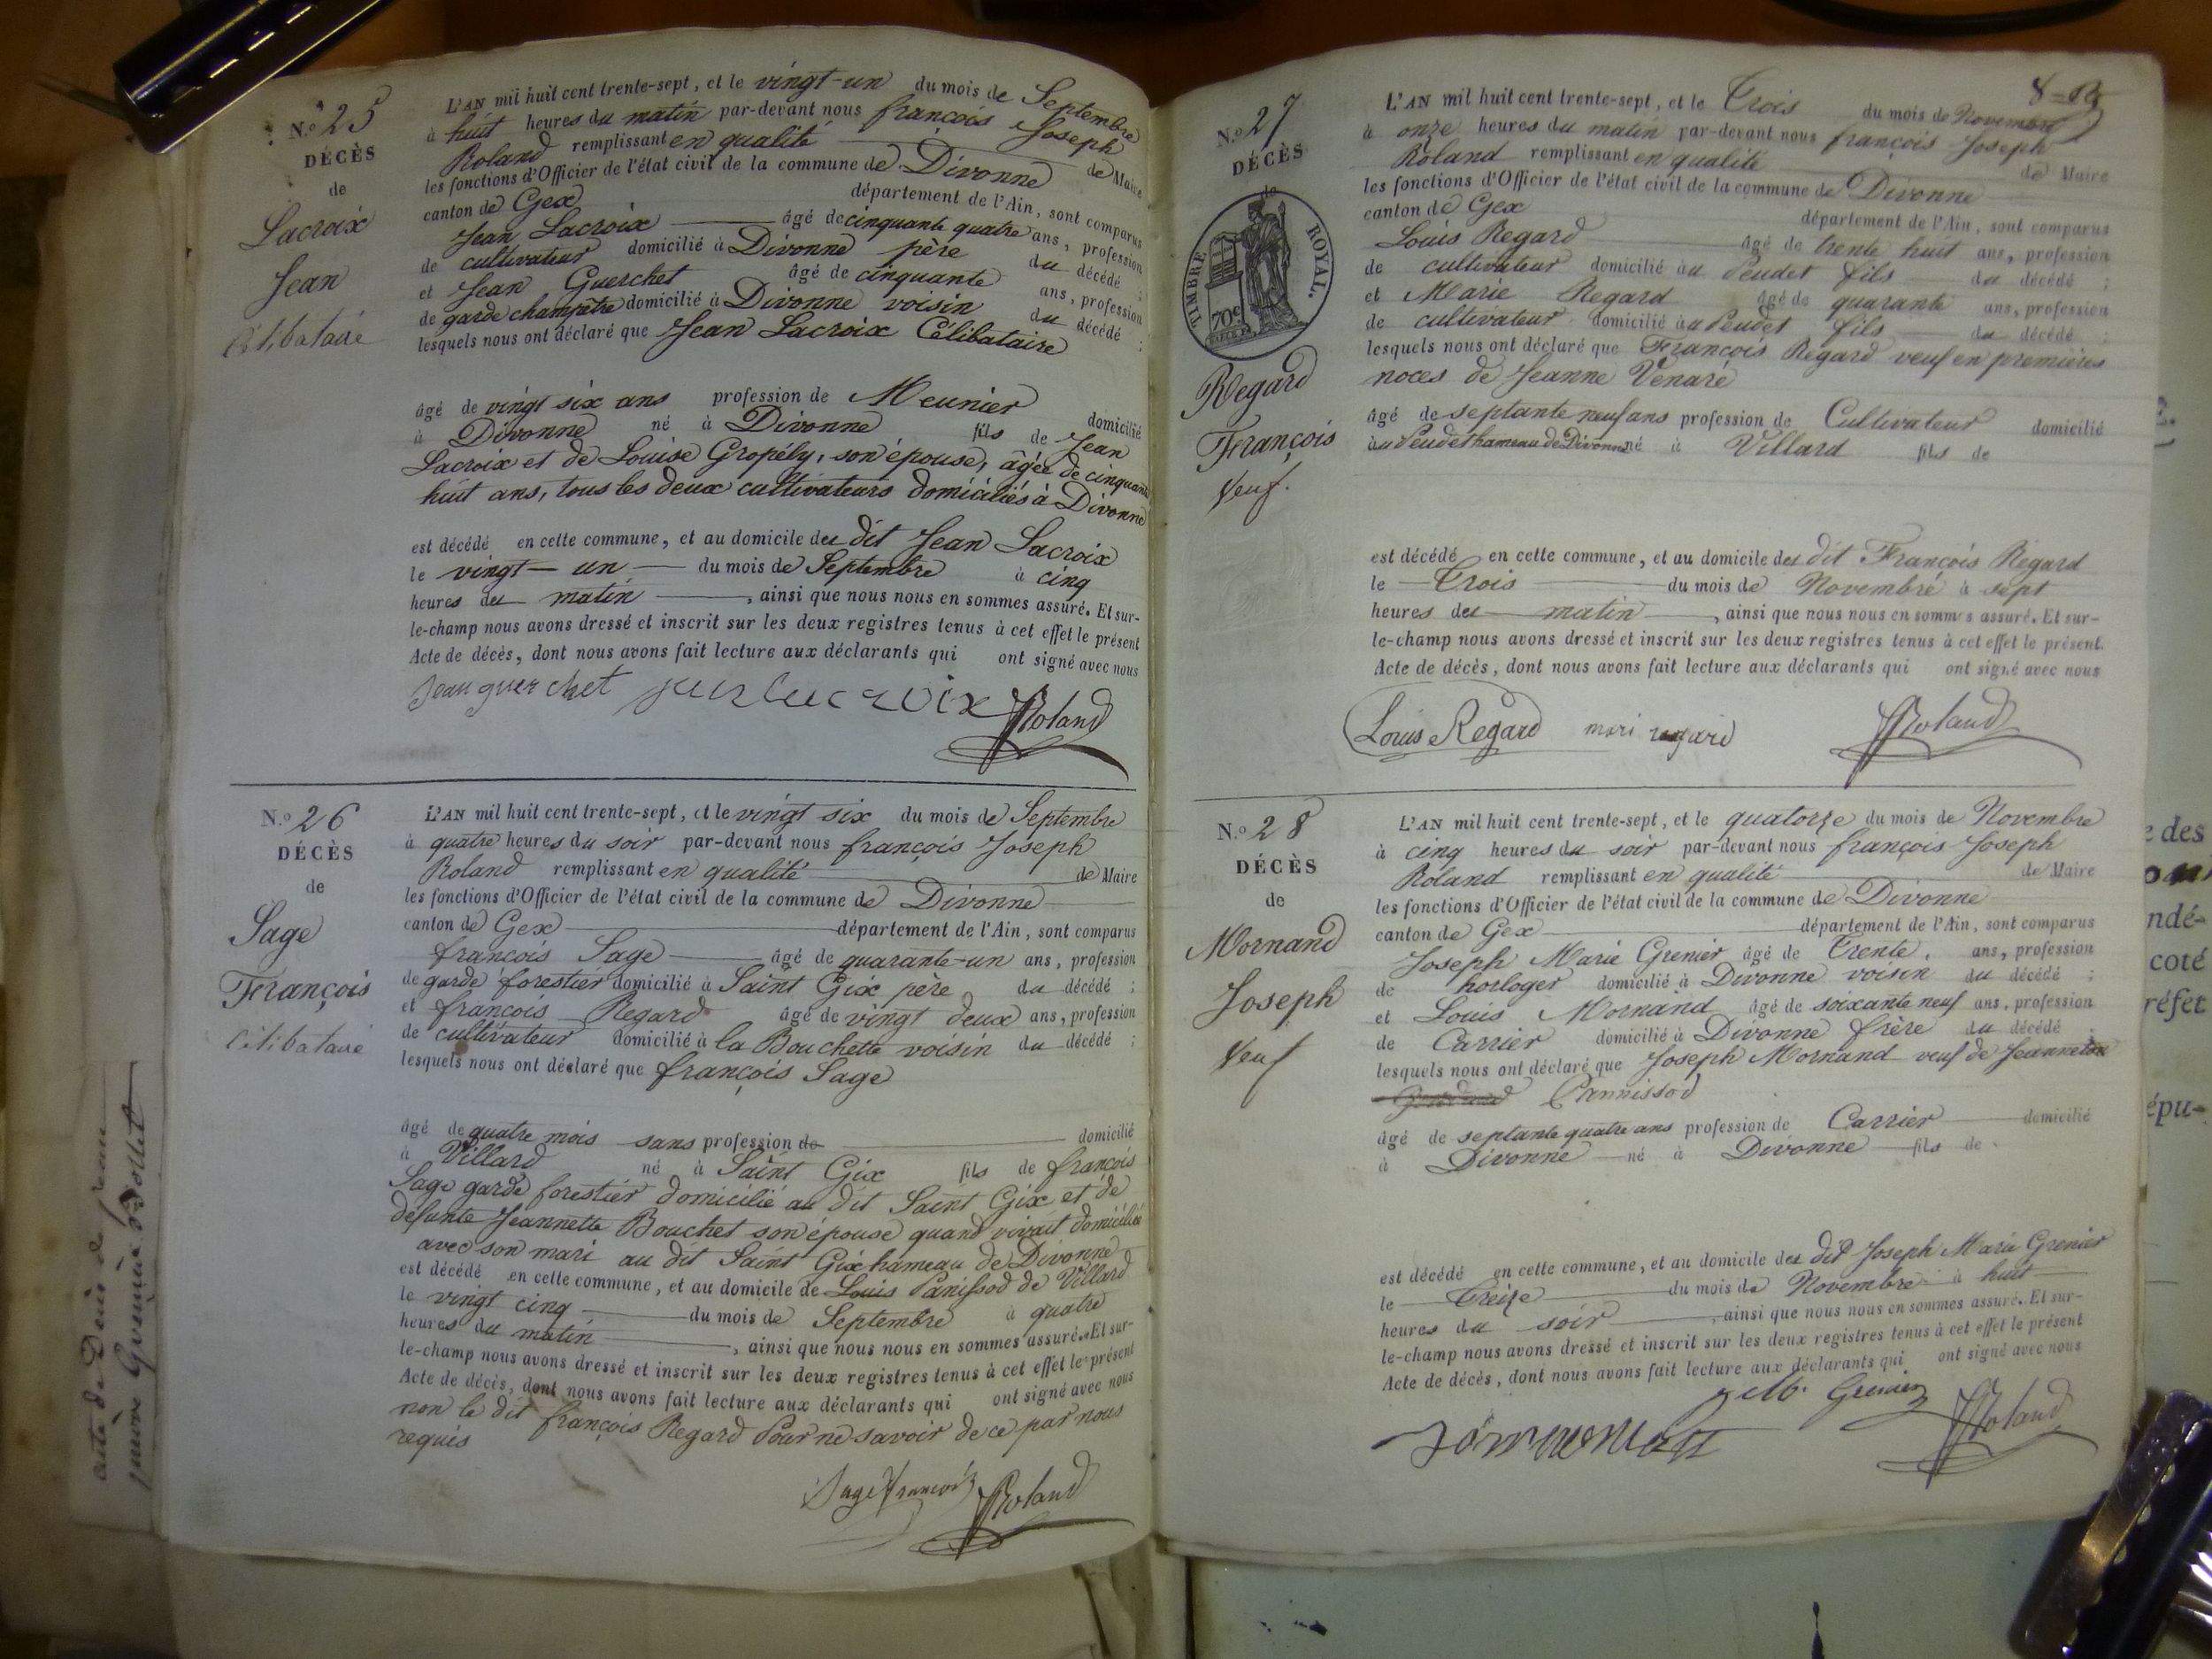 N.º 25
DÉCÈS
de
Lacroix
Jean
Célibataire
L'AN mil huit cent trente-sept, et le vingt-un du mois de Septembre
à huit heures du matin par-devant nous françois Joseph
Roland remplissant en qualité de Maire
les fonctions d'Officier de l'état civil de la commune de Divonne
canton de Gex département de l'Ain, sont comparus
Jean Lacroix âgé de cinquante quatre ans, profession
de cultivateur domicilié à Divonne père du décédé ;
et Jean Guerchet âgé de cinquante ans, profession
de garde champêtre domicilié à Divonne voisin du décédé ;
lesquels nous ont déclaré que Jean Lacroix Célibataire
âgé de vingt six ans profession de Meunier domicilié
à Divonne né à Divonne fils de Jean
Lacroix et de Louise Gropély, son épouse, âgée de cinquante
huit ans, tous les deux cultivateurs domiciliés à Divonne
est décédé en cette commune, et au domicile du dit Jean Lacroix
le vingt-un du mois de Septembre à cinq
heures du matin, ainsi que nous nous en sommes assuré. Et sur-
le-champ nous avons dressé et inscrit sur les deux registres tenus à cet effet le présent
Acte de décès, dont nous avons fait lecture aux déclarants qui ont signé avec nous
Jean guerchet jean lacroix JRoland
N.º 26
DÉCÈS
de
Sage
François
Célibataire
L'AN mil huit cent trente-sept, et le vingt six du mois de Septembre
à quatre heures du soir par-devant nous françois Joseph
Roland remplissant en qualité de Maire
les fonctions d'Officier de l'état civil de la commune de Divonne
canton de Gex département de l'Ain, sont comparus
françois Sage âgé de quarante-un ans, profession
de garde forestier domicilié à Saint Gix père du décédé ;
et françois Regard âgé de vingt deux ans, profession
de cultivateur domicilié à la Bouchette voisin du décédé ;
lesquels nous ont déclaré que françois Sage
âgé de quatre mois sans profession de domicilié
à Villard né à Saint Gix fils de françois
Sage garde forestier domicilié au dit Saint Gix et de
défunte Jeannette Bouchet son épouse quand vivait domiciliée
avec son mari au dit Saint Gix hameau de Divonne
est décédé en cette commune, et au domicile de Louis Panissod de Villard
le vingt cinq du mois de Septembre à quatre
heures du matin, ainsi que nous nous en sommes assuré. Et sur-
le-champ nous avons dressé et inscrit sur les deux registres tenus à cet effet le présent
Acte de décès, dont nous avons fait lecture aux déclarants qui ont signé avec nous
non le dit françois Regard Pour ne savoir de ce par nous
requis
Sage françois JRoland
acte de Denis de
Bottet
8
N.º 27
DÉCÈS
de
TIMBRE ROYAL.
70c
Regard
François
Veuf.
L'AN mil huit cent trente-sept, et le Trois du mois de Novembre
à onze heures du matin par-devant nous françois Joseph
Roland remplissant en qualité de Maire
les fonctions d'Officier de l'état civil de la commune de Divonne
canton de Gex département de l'Ain, sont comparus
Louis Regard âgé de trente huit ans, profession
de cultivateur domicilié au Peudet fils du décédé ;
et Marie Regard âgé de quarante ans, profession
de cultivateur domicilié au Peudet fils du décédé ;
lesquels nous ont déclaré que François Regard veuf en premières
noces de Jeanne Venaré
âgé de septante neuf ans profession de Cultivateur domicilié
au Peudet hameau de Divonne né à Villard fils de
est décédé en cette commune, et au domicile du dit François Regard
le Trois du mois de Novembre à sept
heures du matin, ainsi que nous nous en sommes assuré. Et sur-
le-champ nous avons dressé et inscrit sur les deux registres tenus à cet effet le présent.
Acte de décès, dont nous avons fait lecture aux déclarants qui ont signé avec nous
Louis Regard mari regard JRoland
N.º 28
DÉCÈS
de
Mornand
Joseph
Veuf
L'AN mil huit cent trente-sept, et le quatorze du mois de Novembre
à cinq heures du soir par-devant nous françois Joseph
Roland remplissant en qualité de Maire
les fonctions d'Officier de l'état civil de la commune de Divonne
canton de Gex département de l'Ain, sont comparus
Joseph Marie Grenier âgé de Trente. ans, profession
de horloger domicilié à Divonne voisin du décédé ;
et Louis Mornand âgé de soixante neuf ans, profession
de Carrier domicilié à Divonne frère du décédé
lesquels nous ont déclaré que Joseph Mornand veuf de Jeanneton
Pannissod
âgé de septante quatre ans profession de Carrier domicilié
à Divonne né à Divonne fils de
est décédé en cette commune, et au domicile du dit Joseph Marie Grenier
le Treize du mois de Novembre à huit
heures du soir, ainsi que nous nous en sommes assuré. Et sur-
le-champ nous avons dressé et inscrit sur les deux registres tenus à cet effet le présent
Acte de décès, dont nous avons fait lecture aux déclarants qui ont signé avec nous
J M. Grenier JRoland
e des
ndé-
coté
réfet
épu-